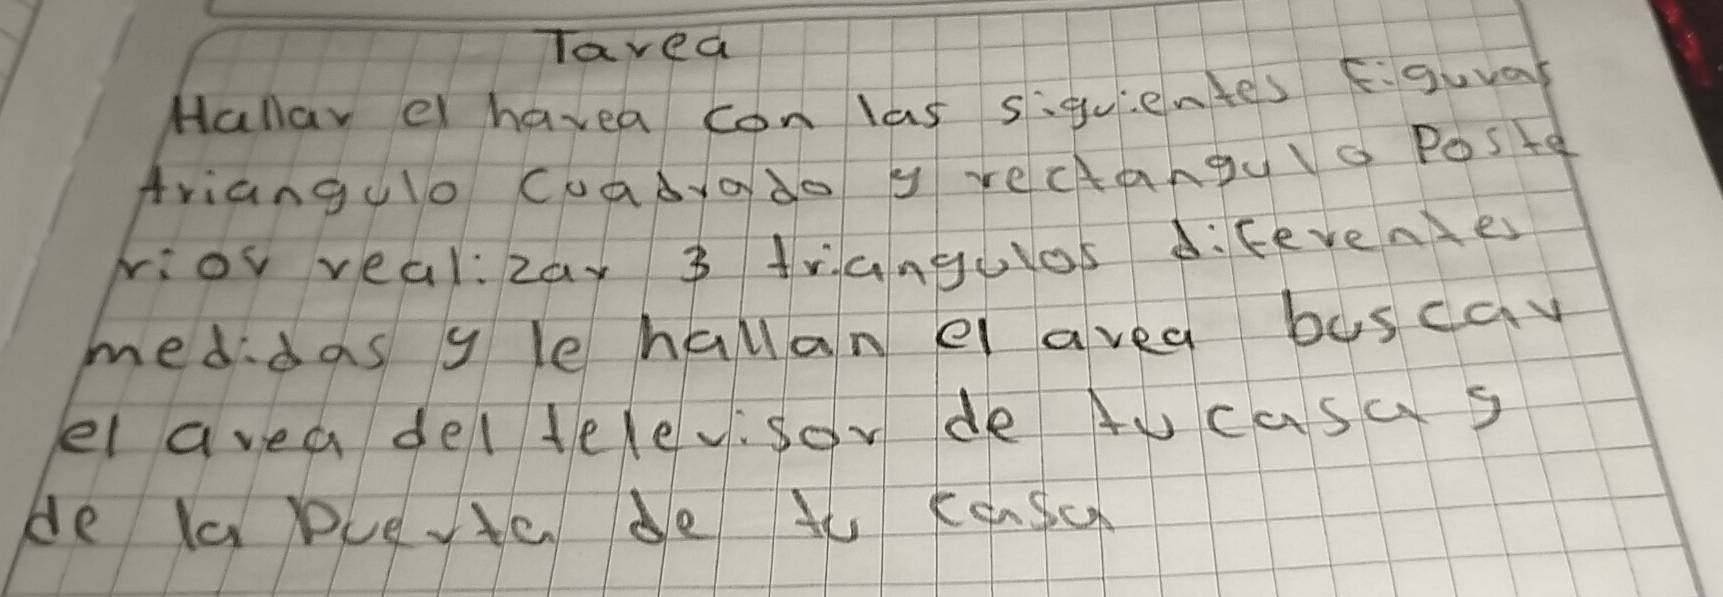 Tarea
Hallar el harea con las siguientes Figuras
triangulo cuadrado y rectangulo Poste
rior realizar 3 triangulos diferentes
medidas y le hallan el area buscar
el area del televisor de tu casa y
de la puerta de tu casa